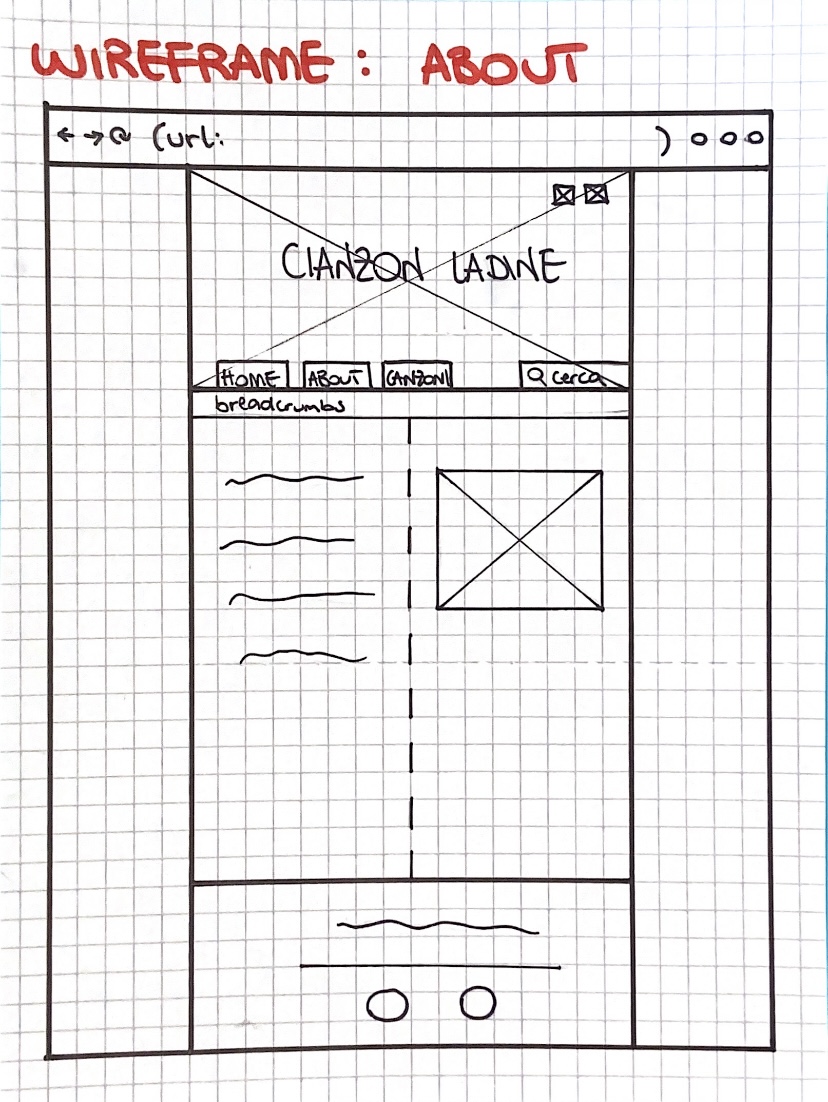 WIREFRAME: ABOUT
(url: )
CIANZON LADINE
HOME ABOUT CANZONI cerca
breadcrumbs